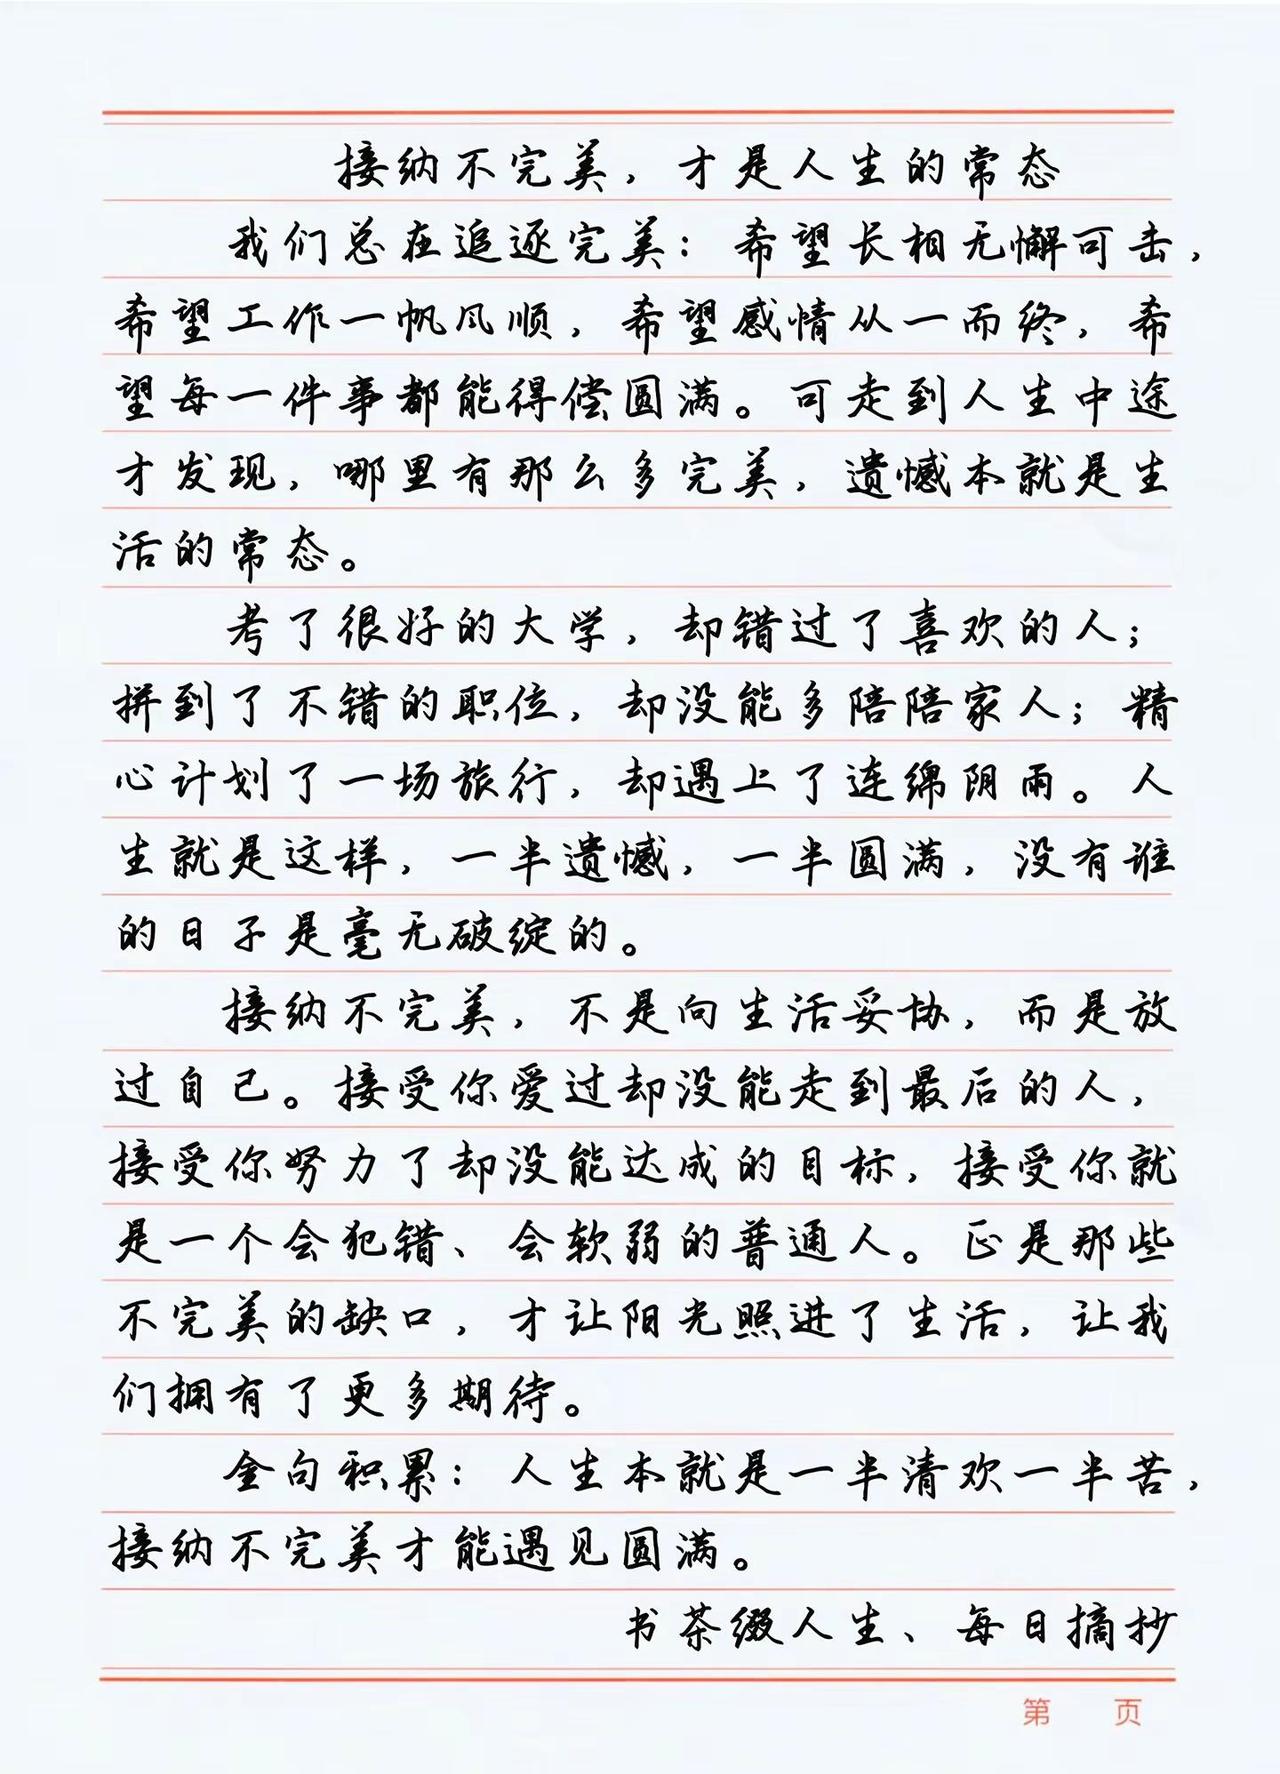 接纳不完美，才是人生的常态
我们总在追逐完美：希望长相无懈可击，
希望工作一帆风顺，希望感情从一而终，希
望每一件事都能得偿圆满。可走到人生中途
才发现，哪里有那么多完美，遗憾本就是生
活的常态。
考了很好的大学，却错过了喜欢的人；
拼到了不错的职位，却没能多陪陪家人；精
心计划了一场旅行，却遇上了连绵阴雨。人
生就是这样，一半遗憾，一半圆满，没有谁
的日子是毫无破绽的。
接纳不完美，不是向生活妥协，而是放
过自己。接受你爱过却没能走到最后的人，
接受你努力了却没能达成的目标，接受你就
是一个会犯错、会软弱的普通人。正是那些
不完美的缺口，才让阳光照进了生活，让我
们拥有了更多期待。
金句积累：人生本就是一半清欢一半苦，
接纳不完美才能遇见圆满。
书茶缀人生、每日摘抄
第 页